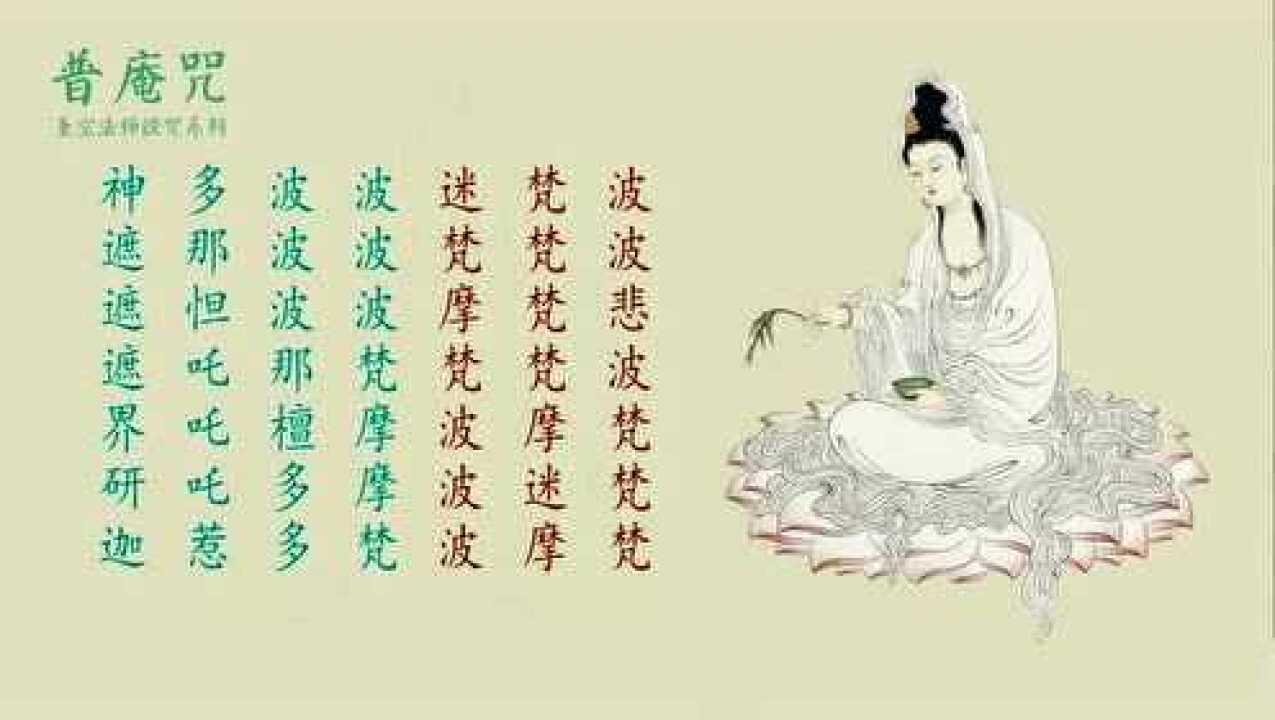 普庵咒
波波悲波梵梵梵
梵梵梵梵摩迷摩
迷梵摩梵波波波
波波波梵摩摩梵
波波波那檀多多
多那怛吒吒吒惹
神遮遮遮界研迦